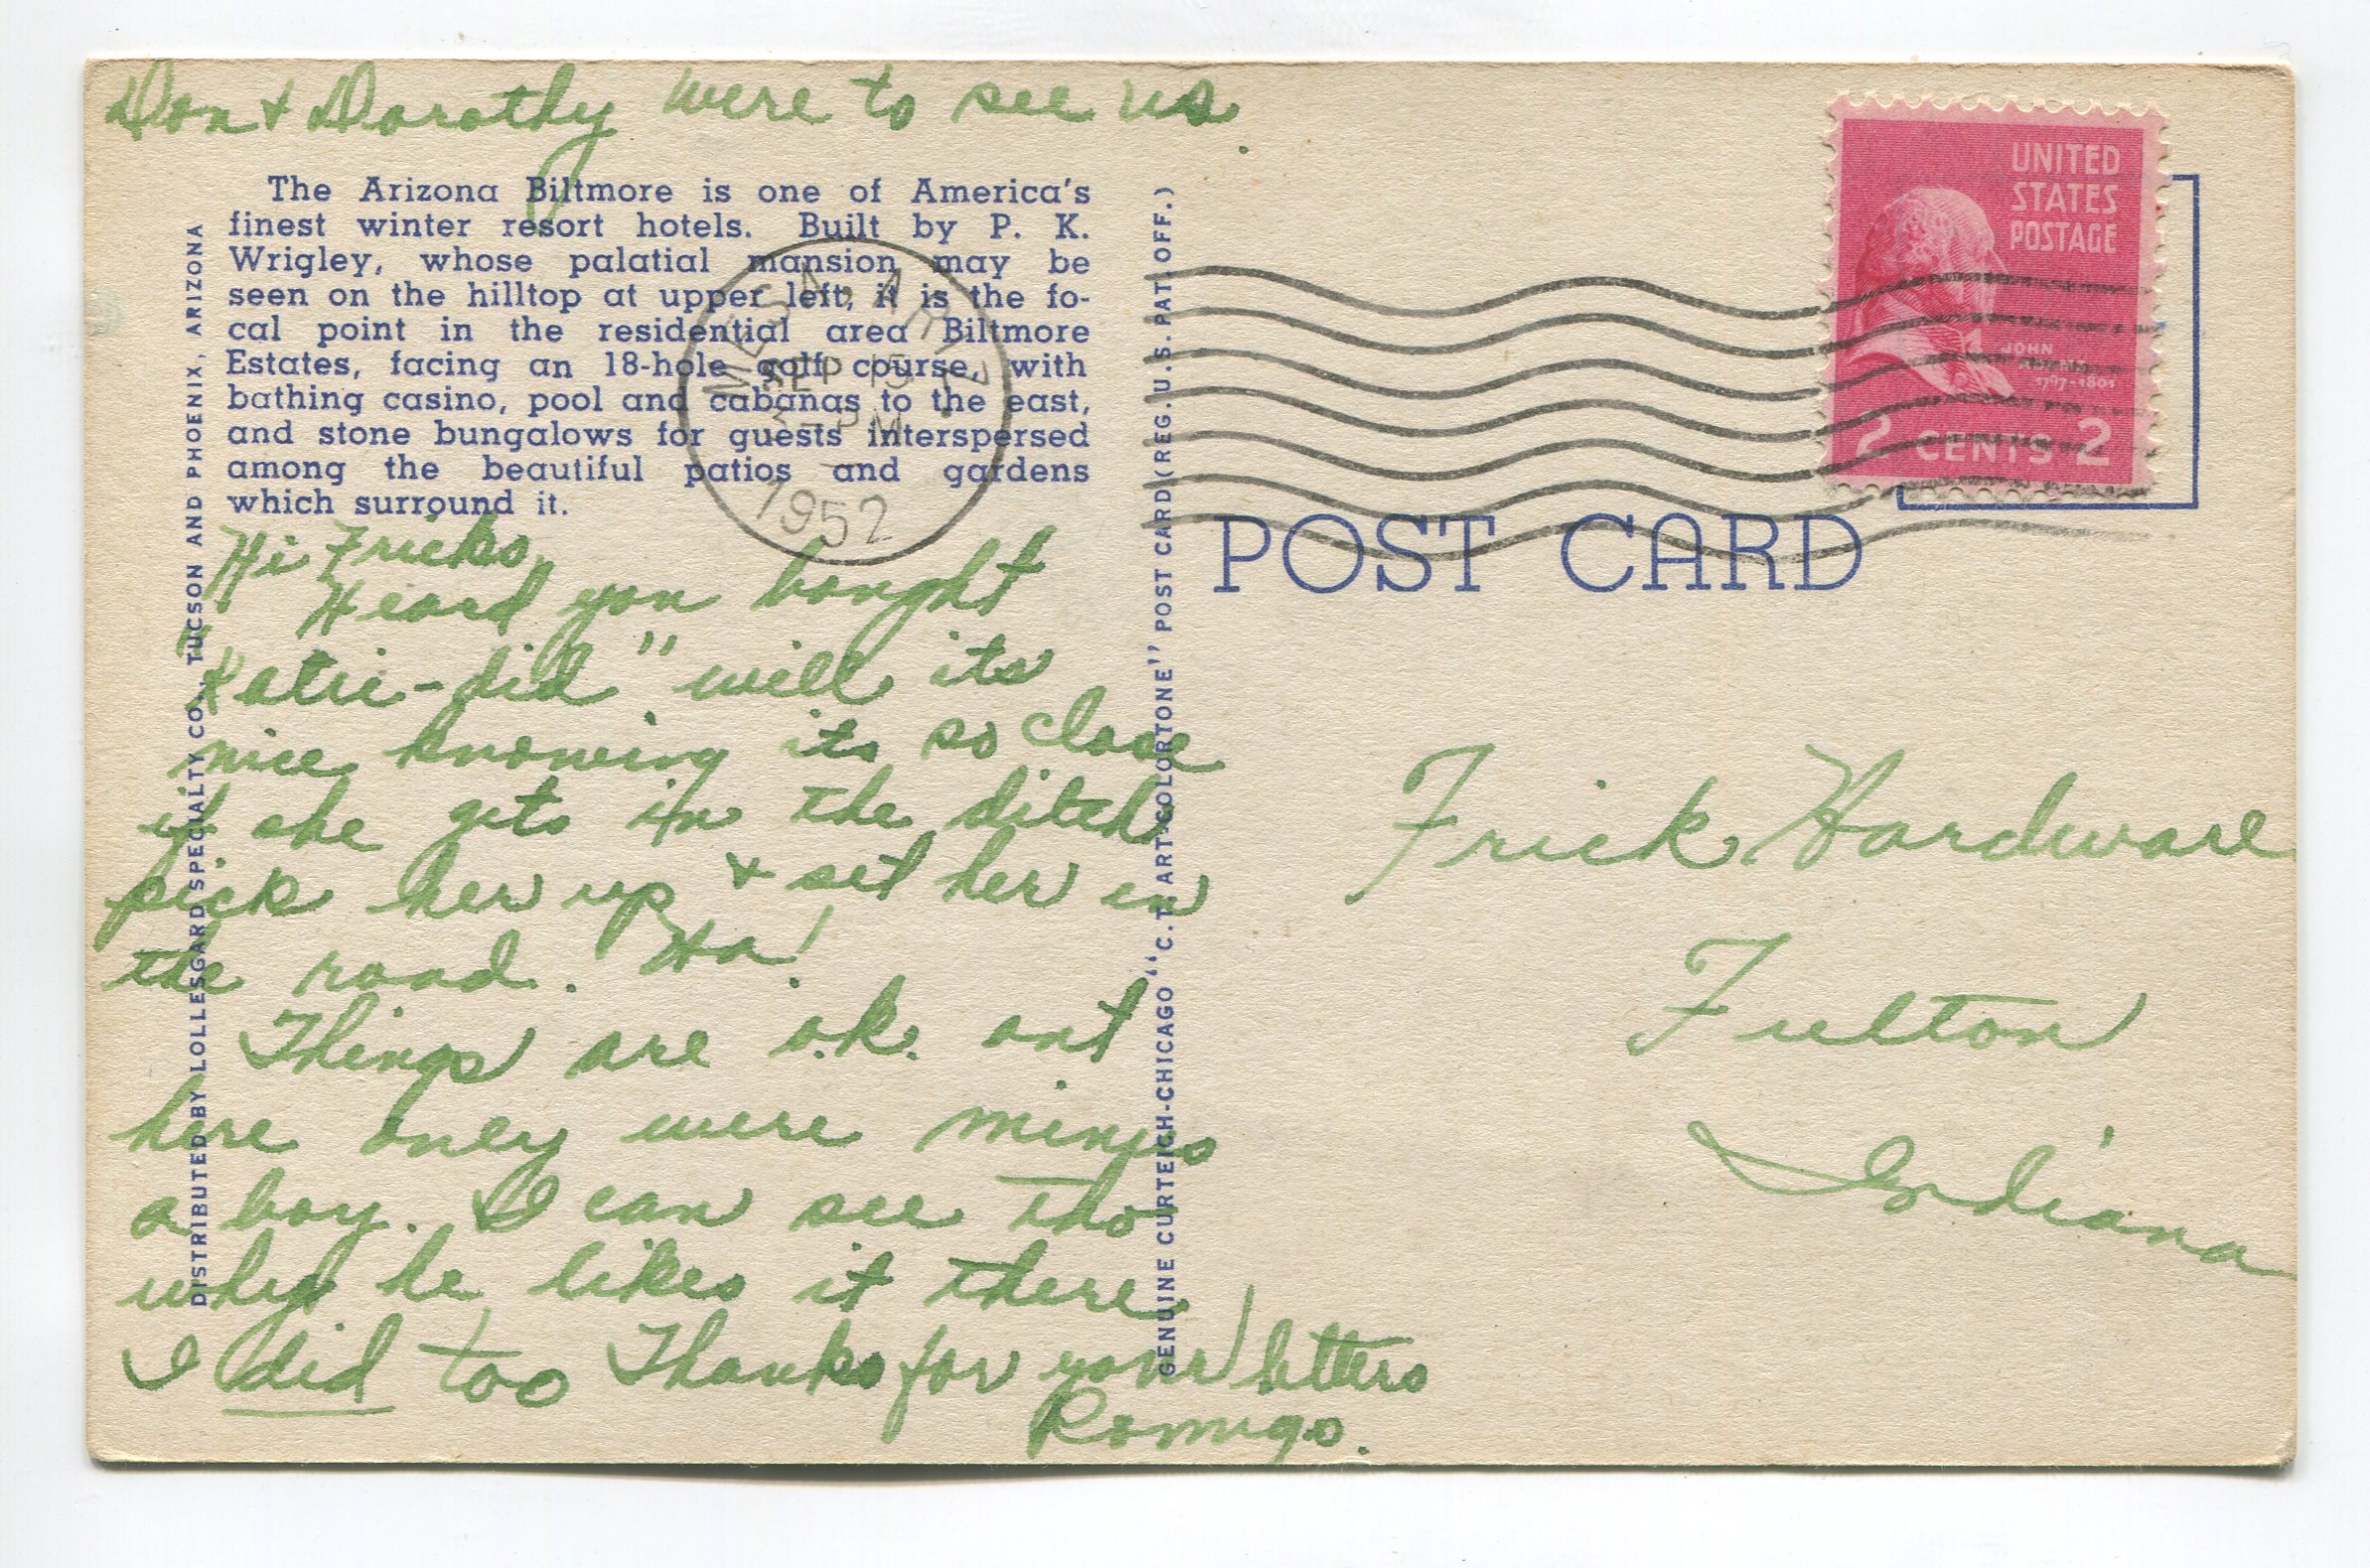 Don & Dorothy were to see us.
The Arizona Biltmore is one of America's
finest winter resort hotels. Built by P. K.
Wrigley, whose palatial mansion may be
seen on the hilltop at upper left, it is the fo-
cal point in the residential area Biltmore
Estates, facing an 18-hole golf course, with
bathing casino, pool and cabanas to the east,
and stone bungalows for guests interspersed
among the beautiful patios and gardens
which surround it.
Hi Fricks,
Heard you bought
"Katie-did" will its
nice knowing its so close
if she gets in the ditch
pick her up & set her in
the road. Ha!
Things are o.k. out
here only were minus
a boy. I can see tho
why he likes it there
I did too Thanks for your letters
Romigs.
DISTRIBUTED BY LOLLESGARD SPECIALTY CO., TUCSON AND PHOENIX, ARIZONA
GENUINE CURTEICH-CHICAGO "C. T. ART-COLORTONE" POST CARD (REG. U. S. PAT. OFF.)
MESA, ARIZ.
SEP 15
3 - PM
1952
UNITED
STATES
POSTAGE
JOHN
ADAMS
1797-1801
2 CENTS 2
POST CARD
Frick Hardware
Fulton
Indiana